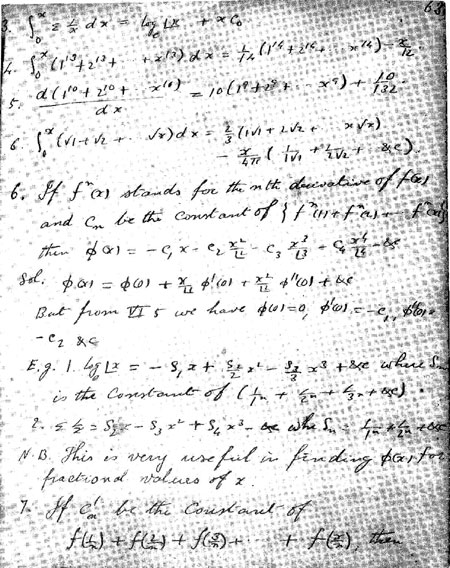 63
3. ∫₀ˣ Σ 1/x dx = log_e |x + x C₀
4. ∫₀ˣ (1¹³ + 2¹³ + ··· + x¹³) dx = 1/14 (1¹⁴ + 2¹⁴ + ··· x¹⁴) − x/12.
5. d(1¹⁰ + 2¹⁰ + ··· x¹⁰)/dx = 10(1⁹ + 2⁹ + ··· x⁹) + 10/132.
6. ∫₀ˣ (√1 + √2 + ·· √x) dx = 2/3 (1√1 + 2√2 + ·· x√x)
− x/4π (1/1√1 + 1/2√2 + &c).
6. If fⁿ(x) stands for the nth derivative of f(x)
and Cn be the constant of {fⁿ(1) + fⁿ(2) + ·· fⁿ(x)}
then φ(x) = − C₁x − C₂ x²/|2 − C₃ x³/|3 − C₄ x⁴/|4 − &c
Sol. φ(x) = φ(0) + x/|1 φ'(0) + x²/|2 φ''(0) + &c
But from VI 5 we have φ(0) = 0, φ'(0) = − C₁, φ''(0) =
− C₂ &c
E.g. 1. log |x = − S₁x + S₂/2 x² − S₃/3 x³ + &c where Sn
is the Constant of (1/1ⁿ + 1/2ⁿ + 1/3ⁿ + &c).
2. Σ 1/x = S₂x − S₃x² + S₄x³ − &c where Sn = 1/1ⁿ + 1/2ⁿ + &c
N.B. This is very useful in finding φ(x) for
fractional values of x.
7. If C'n be the Constant of
f(1/n) + f(2/n) + f(3/n) + ··· + f(x/n), then